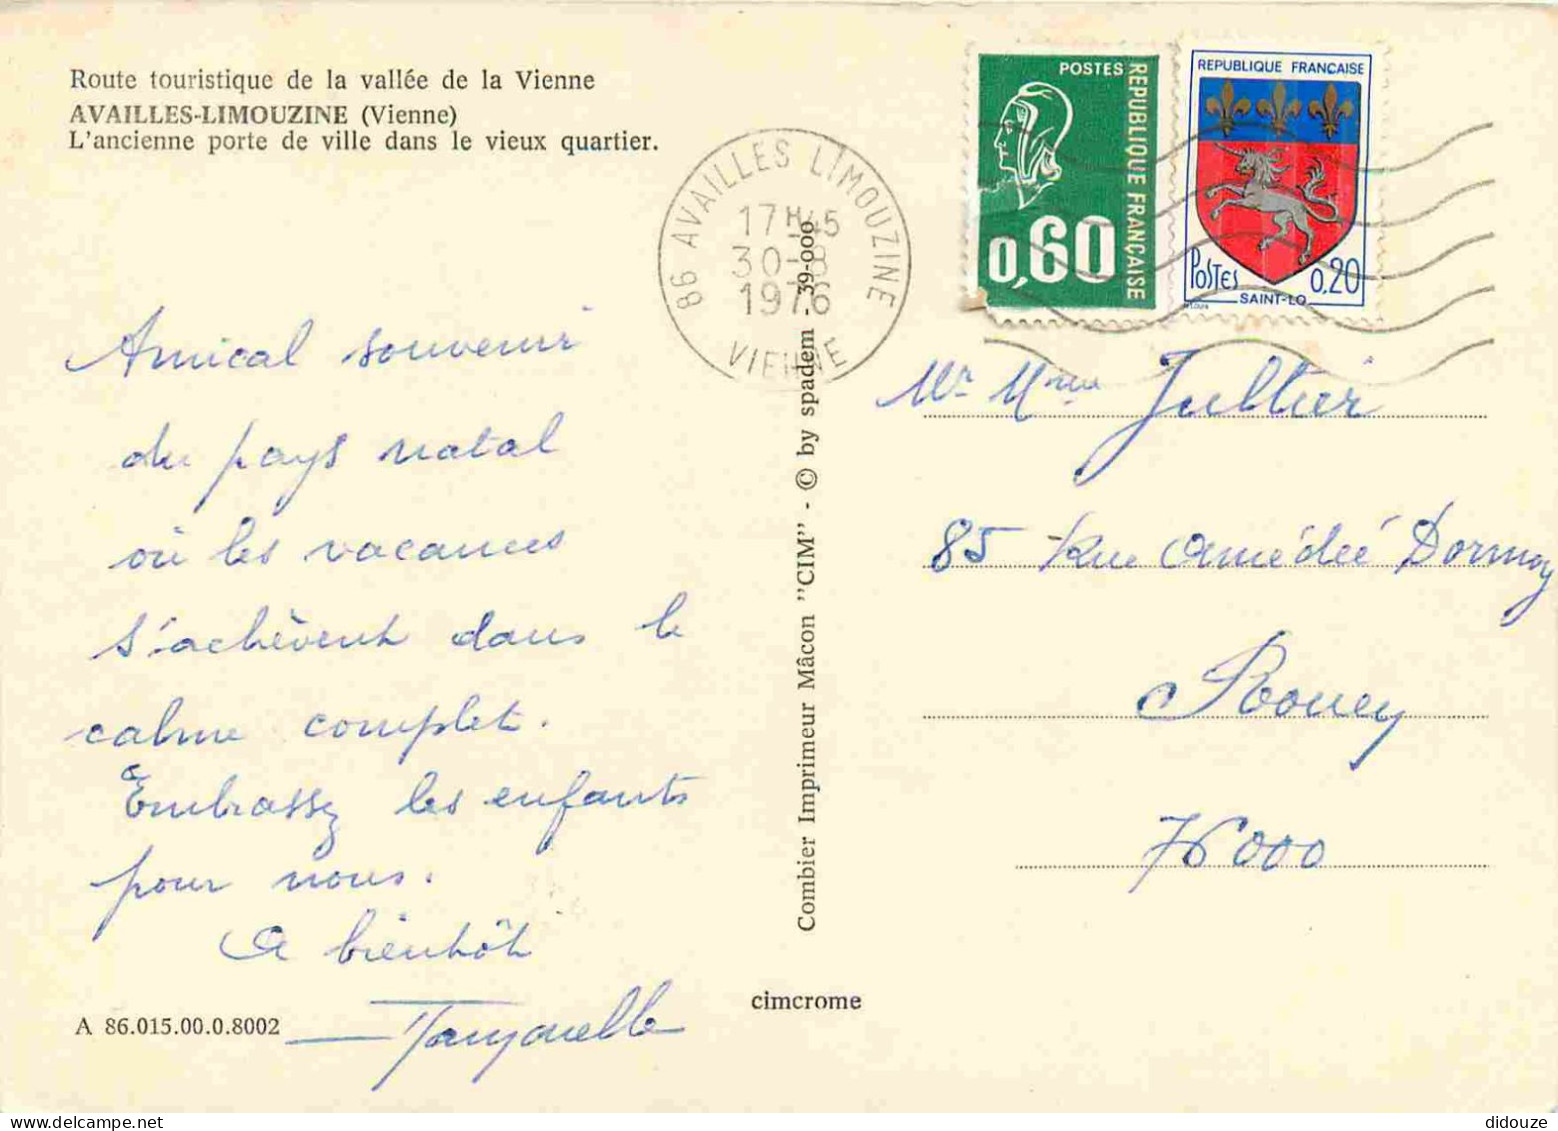 Route touristique de la vallée de la Vienne
AVAILLES-LIMOUZINE (Vienne)
L'ancienne porte de ville dans le vieux quartier.
86 AVAILLES LIMOUZINE
17H45
30-8
1976
VIENNE
POSTES
REPUBLIQUE FRANÇAISE
0,60
REPUBLIQUE FRANÇAISE
POSTES 0,20
SAINT-LO
Amical souvenir
du pays natal
où les vacances
s'achèvent dans le
calme complet.
Embrassez les enfants
pour nous.
A bientôt
A 86.015.00.0.8002
Combier Imprimeur Mâcon "CIM" - © by spadem - 39-000
cimcrome
Mr Mme Jultier
85 Rue Amédée Dormoy
Rouen
76000
didouze